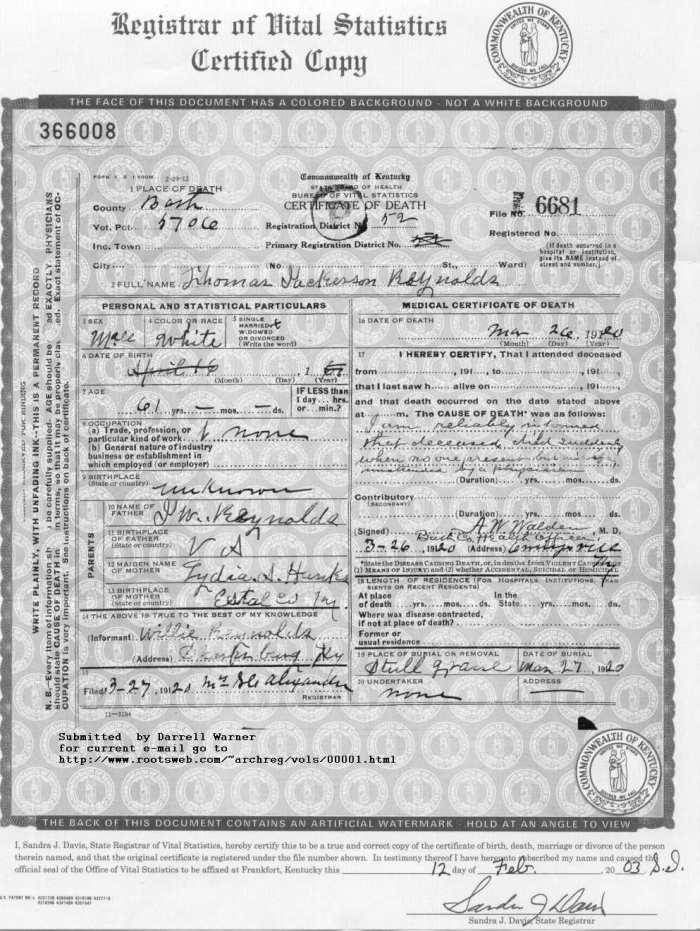 Registrar of Vital Statistics
Certified Copy
COMMONWEALTH OF KENTUCKY
THE FACE OF THIS DOCUMENT HAS A COLORED BACKGROUND - NOT A WHITE BACKGROUND
366008
Commonwealth of Kentucky
STATE BOARD OF HEALTH
BUREAU OF VITAL STATISTICS
CERTIFICATE OF DEATH
1 PLACE OF DEATH
County Bath
Vot. Pct. 5706
Inc. Town
City (No. St., Ward)
Registration District No. 52
Primary Registration District No.
File No. 6681
Registered No.
(If death occurred in a hospital or institution, give its NAME instead of street and number.)
2 FULL NAME Thomas Reynolds
WRITE PLAINLY, WITH UNFADING INK—THIS IS A PERMANENT RECORD
PERSONAL AND STATISTICAL PARTICULARS
3 SEX Male
4 COLOR OR RACE White
5 SINGLE MARRIED WIDOWED OR DIVORCED (Write the word)
6 DATE OF BIRTH
April 16
(Month) (Day) (Year)
7 AGE
61 yrs. — mos. — ds.
IF LESS than 1 day hrs. or min.?
8 OCCUPATION
(a) Trade, profession, or particular kind of work none
(b) General nature of industry business or establishment in which employed (or employer)
9 BIRTHPLACE (State or country) unknown
PARENTS
10 NAME OF FATHER J.W. Reynolds
11 BIRTHPLACE OF FATHER (State or country) Va
12 MAIDEN NAME OF MOTHER Lydia
13 BIRTHPLACE OF MOTHER (State or country)
14 THE ABOVE IS TRUE TO THE BEST OF MY KNOWLEDGE
(Informant) Willie Reynolds
(Address) Ky
15
Filed 3-27, 1920 Alexander
REGISTRAR
MEDICAL CERTIFICATE OF DEATH
16 DATE OF DEATH
Mar 26, 1920
(Month) (Day) (Year)
17 I HEREBY CERTIFY, That I attended deceased
from , 191 , to , 191 ,
that I last saw h alive on , 191 ,
and that death occurred on the date stated above
at m. The CAUSE OF DEATH* was as follows:
I am reliably informed
that deceased died suddenly
when no one present
by a physician
(Duration) yrs. mos. ds.
Contributory
(SECONDARY)
(Duration) yrs. mos. ds.
(Signed) A.W. Walden M. D.
Bath Co Health Officer
3-26, 1920 (Address) Ky
*State the DISEASE CAUSING DEATH, or, in deaths from VIOLENT CAUSES
(1) MEANS OF INJURY; and (2) whether ACCIDENTAL, SUICIDAL, or HOMICIDAL
18 LENGTH OF RESIDENCE (FOR HOSPITALS, INSTITUTIONS, TRANSIENTS OR RECENT RESIDENTS)
At place of death yrs. mos. ds. In the State yrs. mos. ds.
Where was disease contracted, if not at place of death?
Former or usual residence
19 PLACE OF BURIAL OR REMOVAL
DATE OF BURIAL
Mar 27, 1920
20 UNDERTAKER
none
ADDRESS
11—3184
Submitted by Darrell Warner
for current e-mail go to
http://www.rootsweb.com/~archreg/vols/00001.html
COMMONWEALTH OF KENTUCKY
THE BACK OF THIS DOCUMENT CONTAINS AN ARTIFICIAL WATERMARK - HOLD AT AN ANGLE TO VIEW
I, Sandra J. Davis, State Registrar of Vital Statistics, hereby certify this to be a true and correct copy of the certificate of birth, death, marriage or divorce of the person
therein named, and that the original certificate is registered under the file number shown. In testimony thereof I have hereunto subscribed my name and caused the
official seal of the Office of Vital Statistics to be affixed at Frankfort, Kentucky this 12 day of Feb. 2003 S.J.
Sandra J Davis
Sandra J. Davis, State Registrar